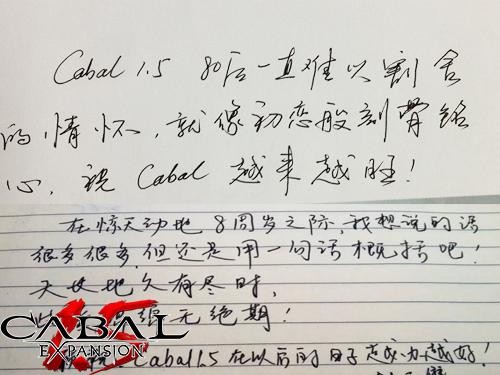 Cabal 1.5 80后一直难以割舍
的情怀，就像初恋般刻骨铭
心，祝 Cabal 越来越旺！
在惊天动地 8周岁之际，我想说的话
很多很多，但还是用一句话概括吧！
天长地久有尽时，
此 绵绵无绝期！
CABAL
EXPANSION
Cabal1.5 在以后的日子越办越好！